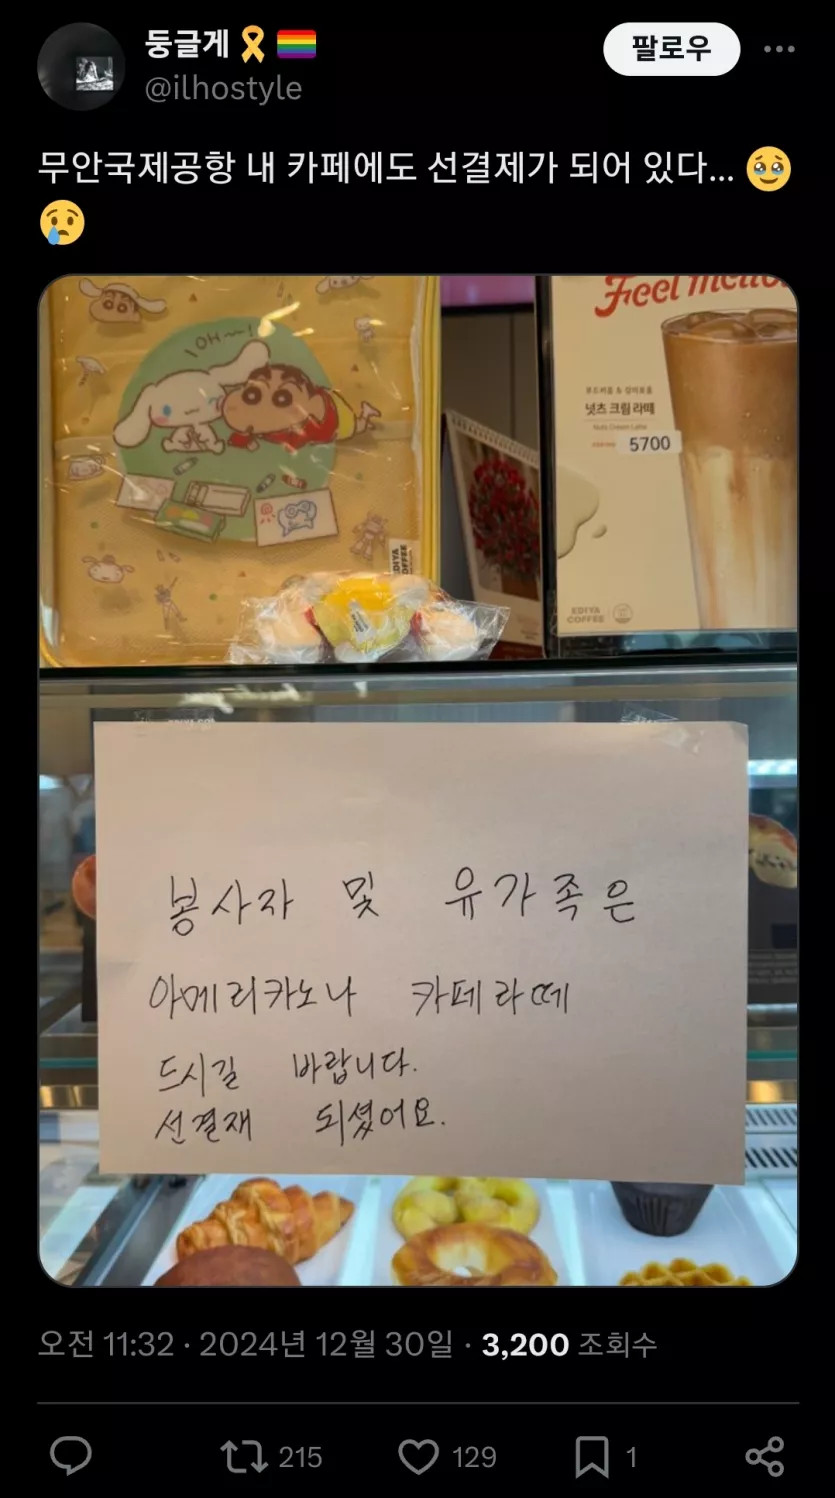 둥글게
@ilhostyle
팔로우
무안국제공항 내 카페에도 선결제가 되어 있다...
\OH~!
Feel
부드러움 & 감미로움
넛츠 크림 라떼
Nuts Cream Latte
5700
EDIYA
COFFEE
EDIYA
COFFEE
봉사자 및 유가족은
아메리카노나 카페라떼
드시길 바랍니다.
선결재 되셨어요.
오전 11:32 · 2024년 12월 30일 · 3,200 조회수
215
129
1